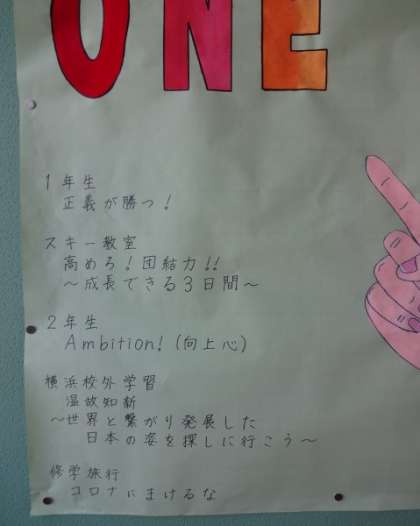 ONE
1年生
正義が勝つ!
スキー教室
高めろ!団結力!!
~成長できる3日間~
2年生
Ambition!(向上心)
横浜校外学習
温故知新
~世界と繋がり発展した
日本の姿を探しに行こう~
修学旅行
コロナにまけるな